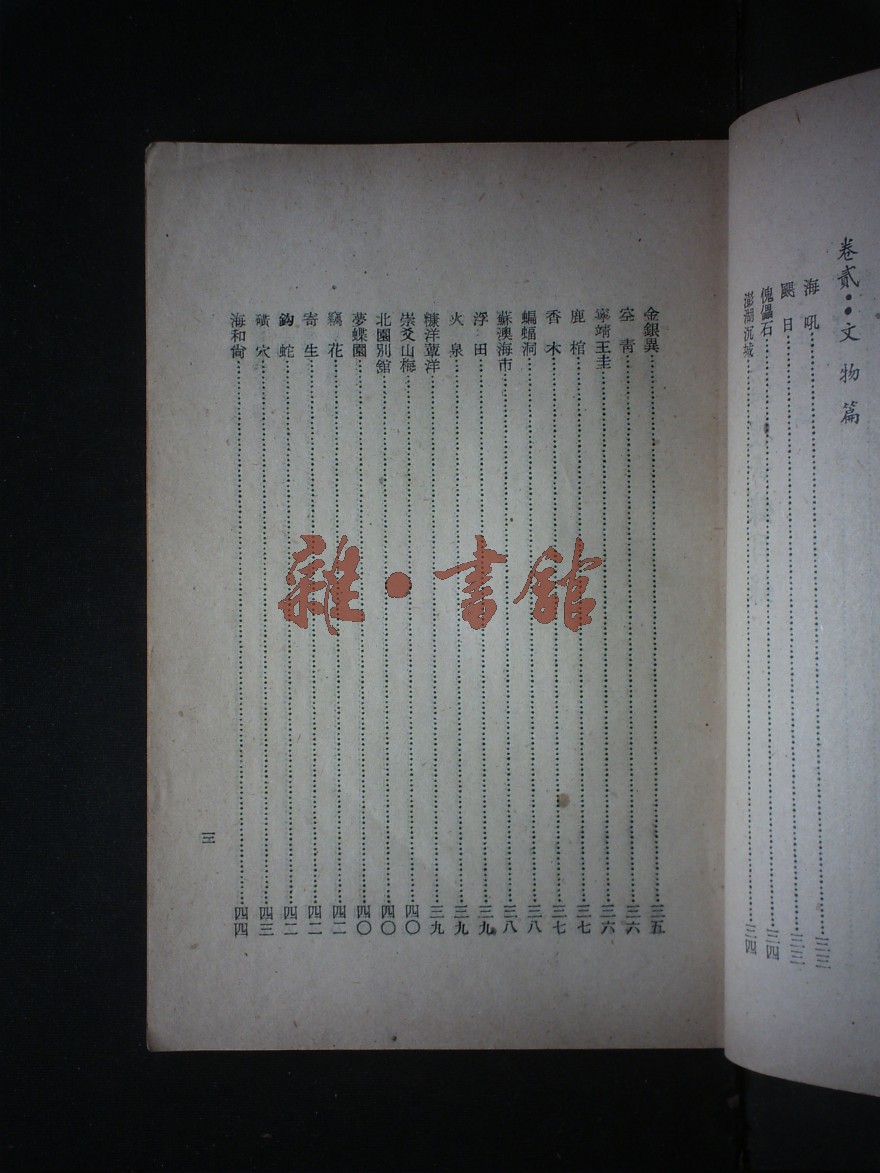 卷貳：文物篇
海吼……三三
颶日……三三
傀儡石……三四
澎湖沉城……三四
金銀異……三五
空青……三六
寧靖王圭……三六
鹿棺……三七
香木……三七
蝙蝠洞……三八
蘇澳海市……三八
浮田……三九
火泉……三九
糠洋蕈洋……三九
崇爻山梅……四〇
北園別館……四〇
夢蝶園……四〇
竊花……四二
寄生……四二
鈎蛇……四二
磺穴……四三
海和尙……四四
三
雜·書館